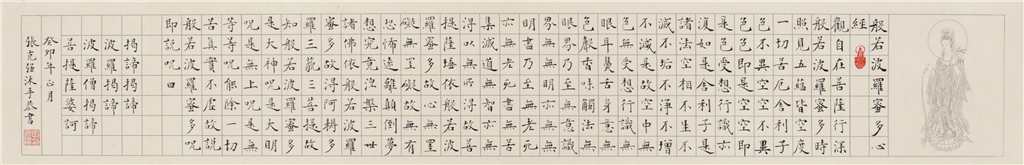 般若波羅蜜多心
經
觀自在菩薩行深
般若波羅蜜多時
照見五蘊皆空度
一切苦厄舍利子
色不異空空不異
色色即是空空即
是色受想行識亦
復如是舍利子是
諸法空相不生不
滅不垢不淨不增
不減是故空中無
色無受想行識無
眼耳鼻舌身意無
色聲香味觸法無
眼界乃至無意識
界無無明亦無無
明盡乃至無老死
亦無老死盡無苦
集滅道無智亦無
得以無所得故菩
提薩埵依般若波
羅蜜多故心無罣
礙無罣礙故無有
恐怖遠離顛倒夢
想究竟涅槃三世
諸佛依般若波羅
蜜多故得阿耨多
羅三藐三菩提故
知般若波羅蜜多
是大神呪是大明
呪是無上呪是無
等等呪能除一切
苦真實不虛故說
般若波羅蜜多呪
即說呪曰
揭諦揭諦
波羅揭諦
波羅僧揭諦
菩提薩婆訶
癸卯年正月
張克强沐手恭書